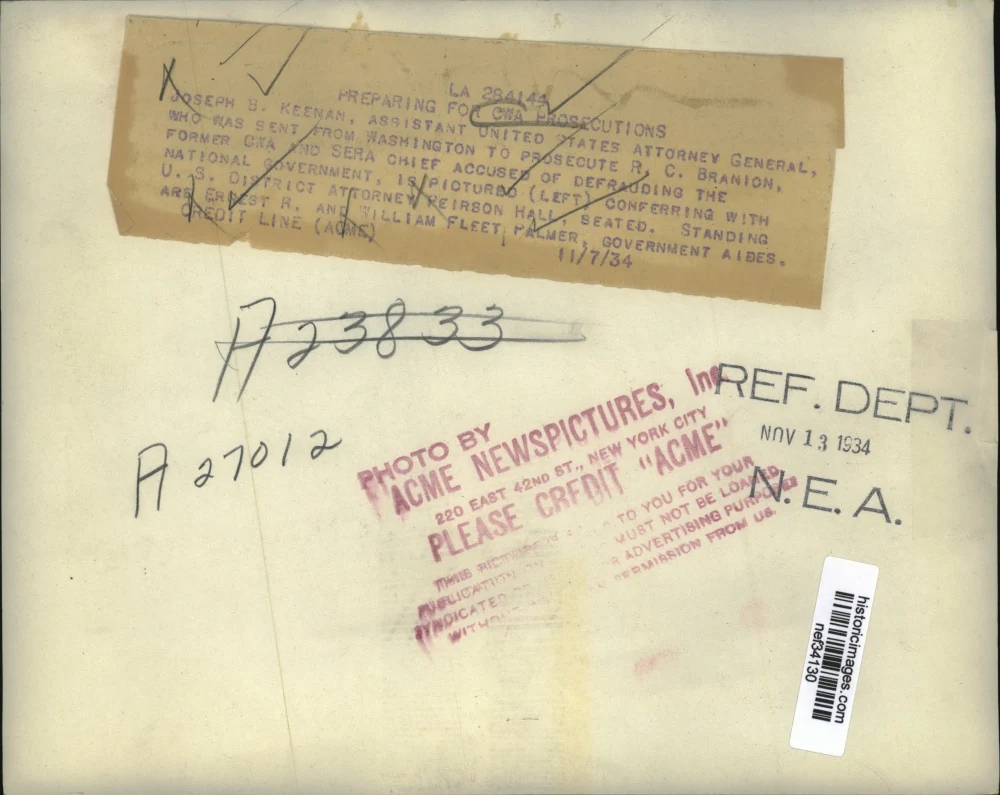 LA 284144
PREPARING FOR CWA PROSECUTIONS
JOSEPH B. KEENAN, ASSISTANT UNITED STATES ATTORNEY GENERAL,
WHO WAS SENT FROM WASHINGTON TO PROSECUTE R. C. BRANION,
FORMER CWA AND SERA CHIEF ACCUSED OF DEFRAUDING THE
NATIONAL GOVERNMENT, IS PICTURED (LEFT) CONFERRING WITH
U. S. DISTRICT ATTORNEY PEIRSON HALL, SEATED. STANDING
ARE ERNEST R. AND WILLIAM FLEET PALMER, GOVERNMENT AIDES.
CREDIT LINE (ACME) 11/7/34
A23833
A 27012
PHOTO BY
ACME NEWSPICTURES, Inc
220 EAST 42ND ST., NEW YORK CITY
PLEASE CREDIT "ACME"
THIS TO YOU FOR YOUR
PUBLICATION MUST NOT BE LOANED
SYNDICATED ADVERTISING PURPOSES
PERMISSION FROM US.
REF. DEPT.
NOV 13 1934
N. E. A.
historicimages.com
nef34130